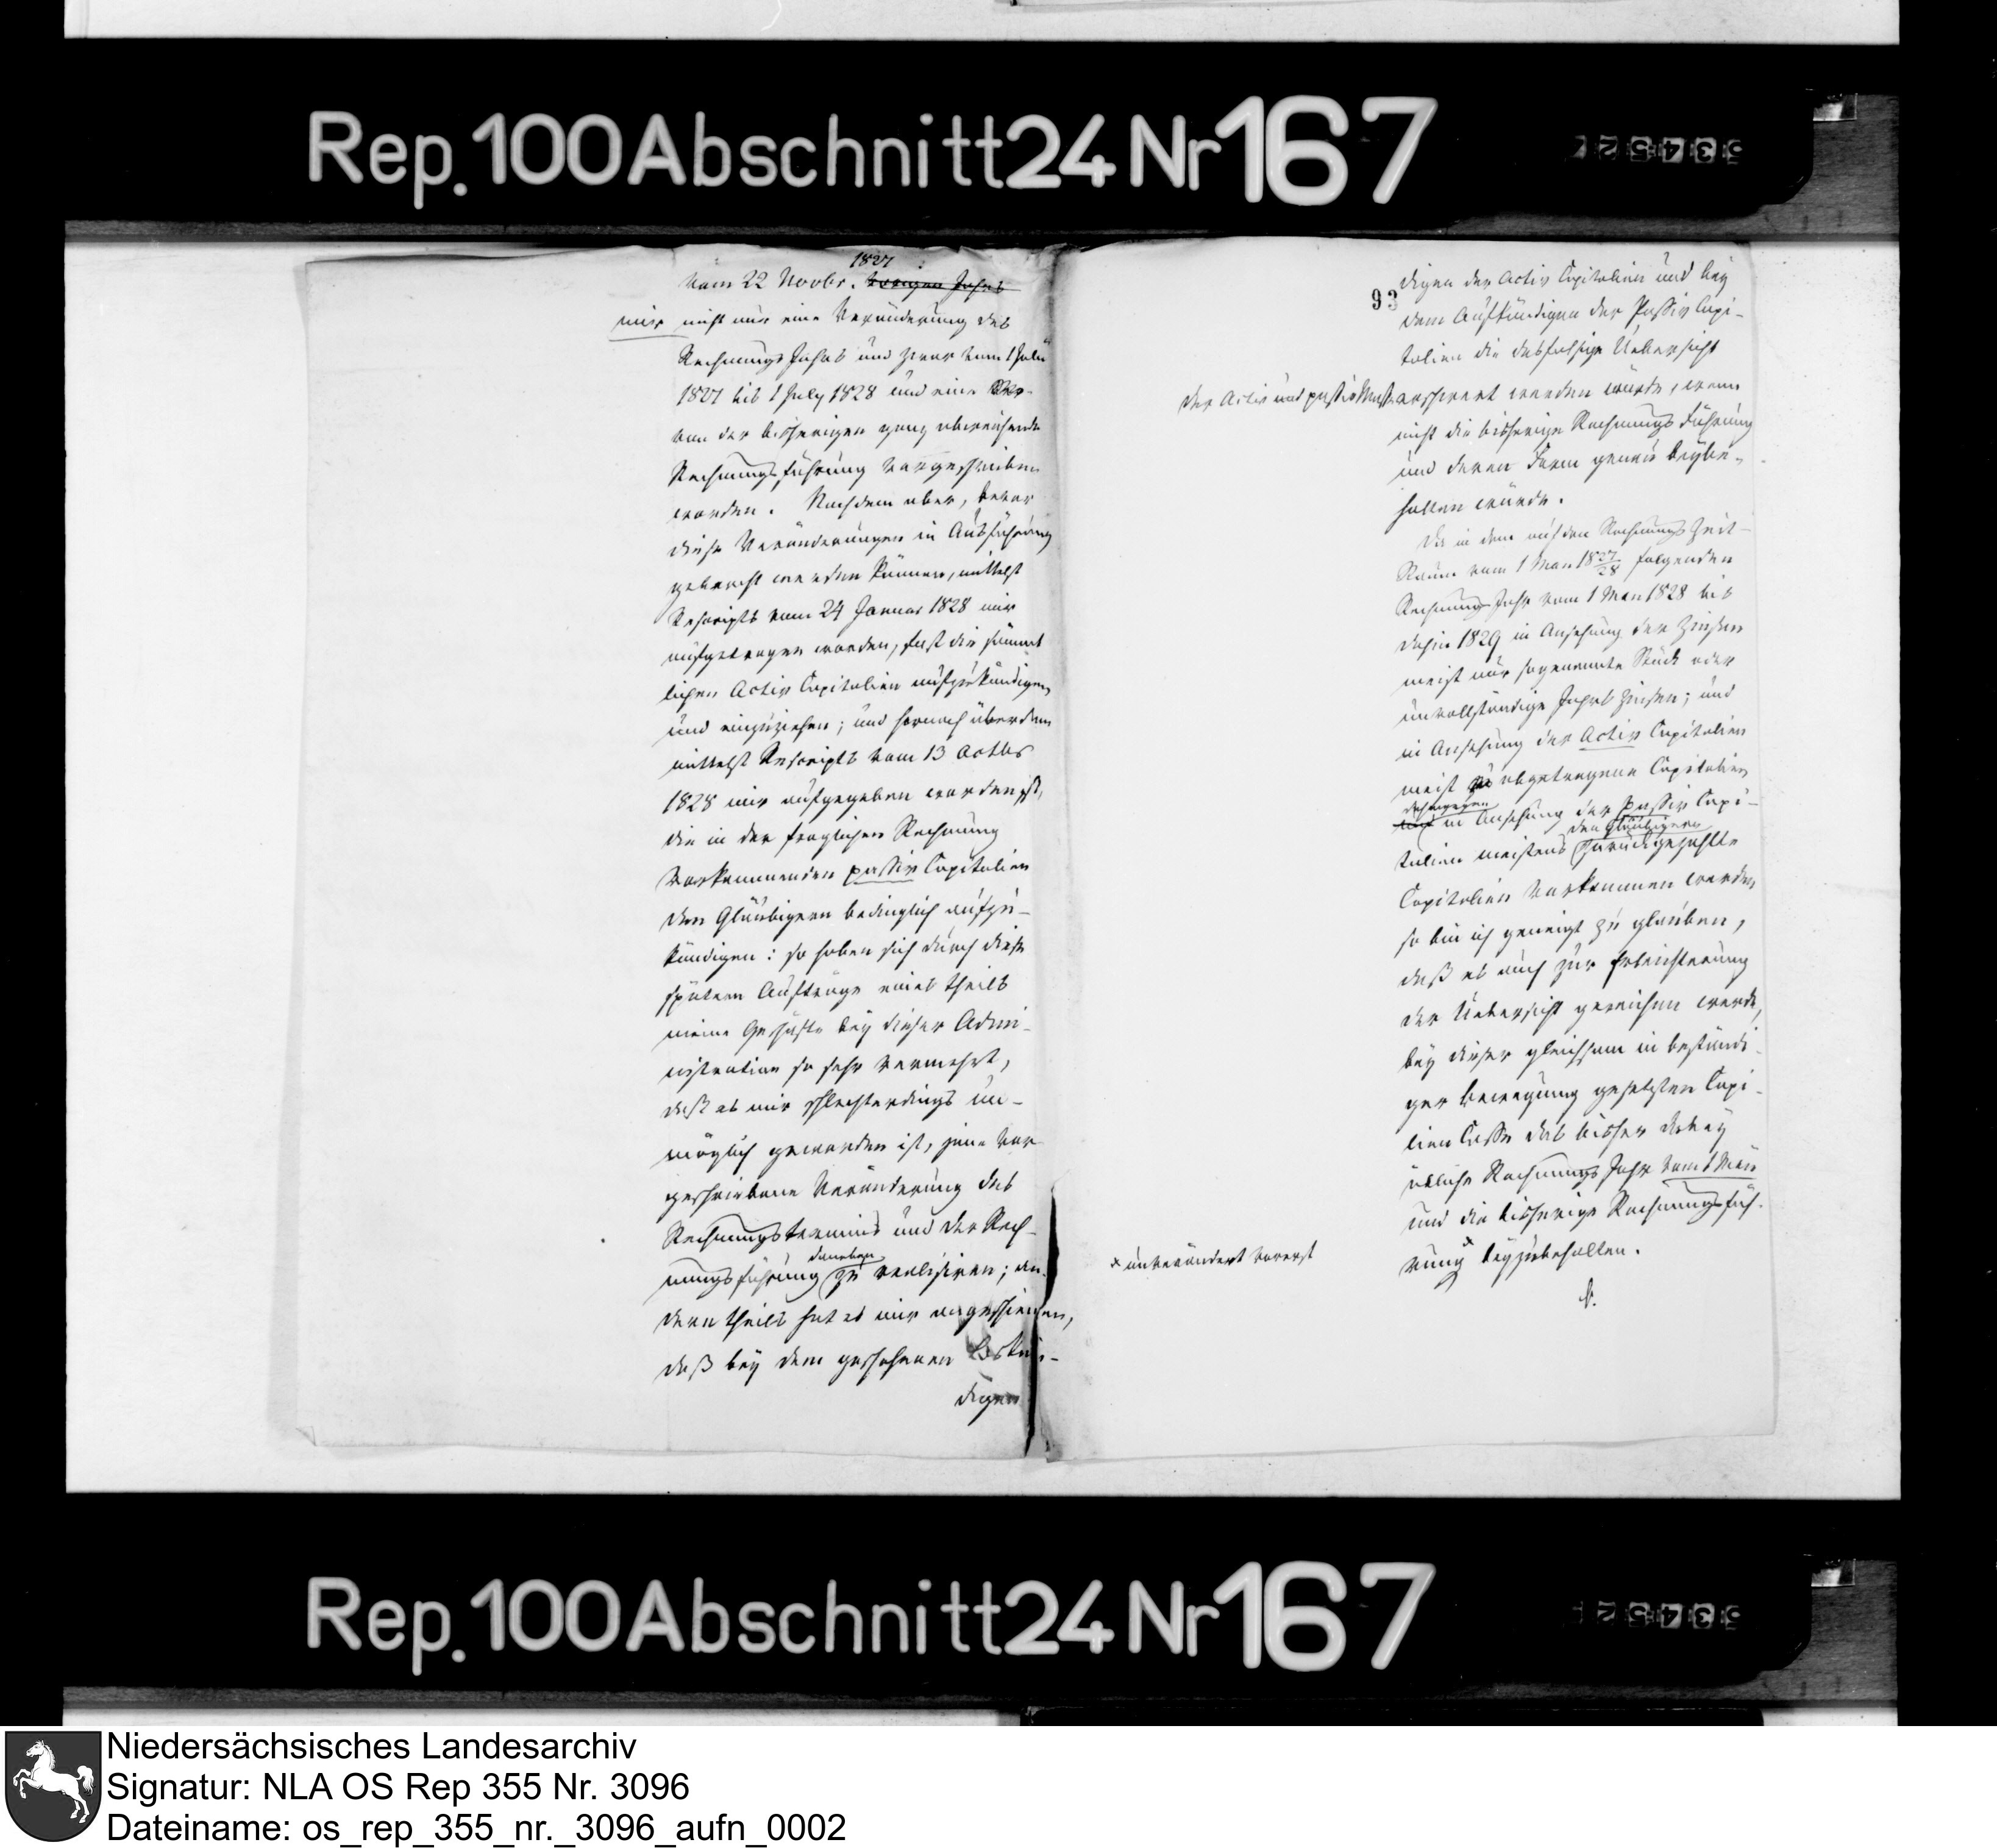 Rep. 100 Abschnitt 24 Nr 167
1827
vom 22 Novbr. vorigen Jahrs
mir nicht nur eine Veränderung des
Rechnungs Jahrs und zwar vom 1 July
1827 bis 1 July 1828 und eine
von der bisherigen ganz abweichende
Rechnungsführung vorgeschrieben
worden. Nachdem aber, bevor
diese Veränderungen in Ausführung
gebracht werden können, mittelst
Rescripts vom 24 Januar 1828 mir
aufgetragen worden, fast die sämmt
lichen Activ Capitalien aufzukündigen
und einzuziehen; und hernach überdem
mittelst Rescripts vom 13 Octbr
1828 mir aufgegeben worden ist,
die in der fraglichen Rechnung
vorkommenden passiv Capitalien
den Gläubigern bedinglich aufzu-
kündigen: so haben sich durch diese
spätern Aufträge eines theils
meine Geschäfte bey dieser Admi-
nistration so sehr vermehrt,
daß es mir schlechterdings un-
möglich geworden ist, jene vor
geschriebene Veränderung des
Rechnungstermins und der Rech-
daneben
nungsführung zu realisiren; an-
dern theils hat es mir angeschienen,
daß bey dem geschehenen
digen
93
digen der Activ Capitalien und bey
dem Aufkündigen der Passiv Capi-
talien die desfalsige Uebersicht
der Activ und passiv Masse erschwert werden würde, wenn
nicht die bisherige Rechnungs Führung
und deren Form genau beybe-
halten würde.
Da in dem auf den Rechnungs Zeit-
Raum vom 1 May 1827/28 folgenden
Rechnungs Jahr vom 1 May 1828 bis
dahin 1829 in Ansehung der Zinsen
meist nur sogenannte Stück oder
unvollständige Jahrs Zinsen; und
in Ansehung der Activ Capitalien
meist abgetragene Capitalien
dahingegen
und in Ansehung der Passiv Capi-
den Gläubigern
talien meistens zurückgezahlte
Capitalien vorkommen werden
so bin ich geneigt zu glauben,
daß es auch zur Erleichterung
der Uebersicht gereichen werde,
bey dieser gleichsam in beständi-
ger Bewegung gesetzten Capi-
lien Casse das bisher dabey
übliche Rechnungs Jahr vom 1 May
und die bisherige Rechnungsfüh-
× unverändert vorerst
rung × beyzubehalten.
Rep. 100 Abschnitt 24 Nr 167
Niedersächsisches Landesarchiv
Signatur: NLA OS Rep 355 Nr. 3096
Dateiname: os_rep_355_nr._3096_aufn_0002